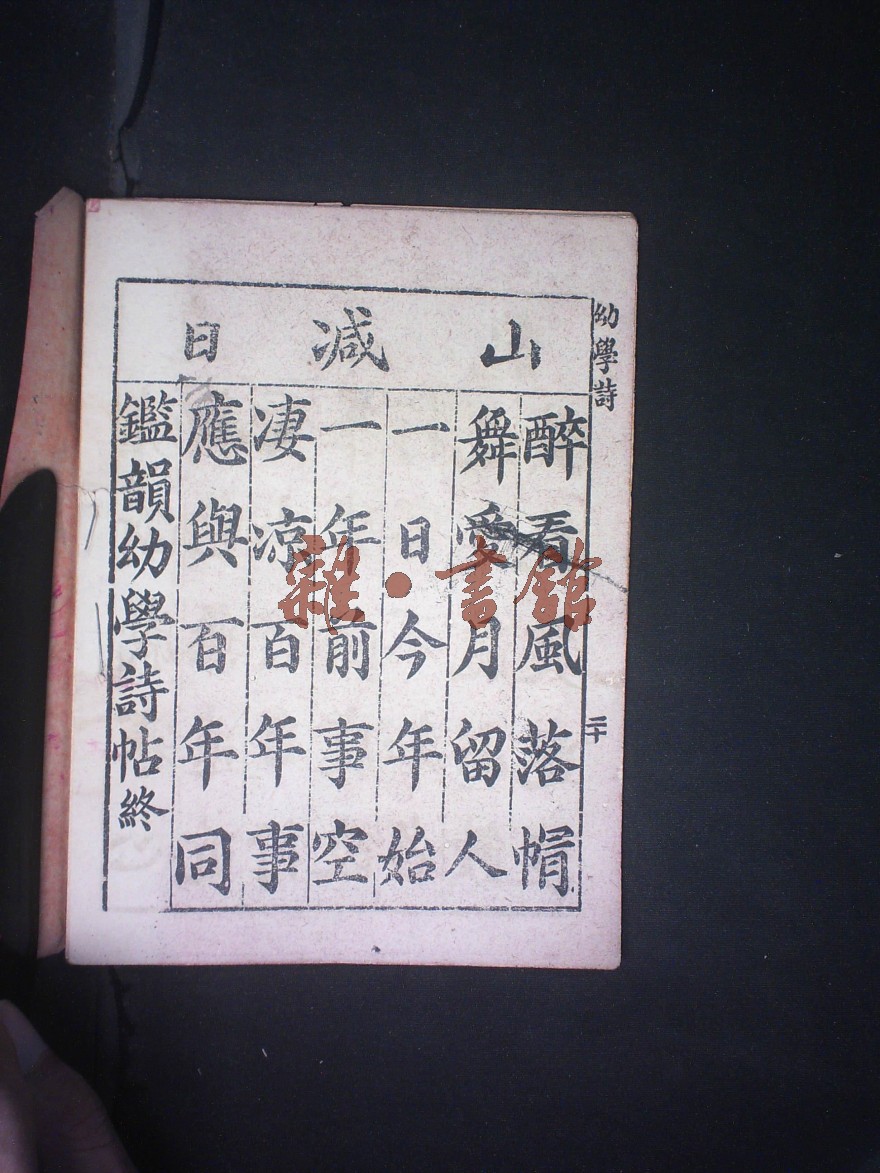 幼學詩
二十
山減日
醉看風落帽
舞愛月留人
一日今年始
一年前事空
凄凉百年事
應與百年同
鑑韻幼學詩帖終
雜·書館